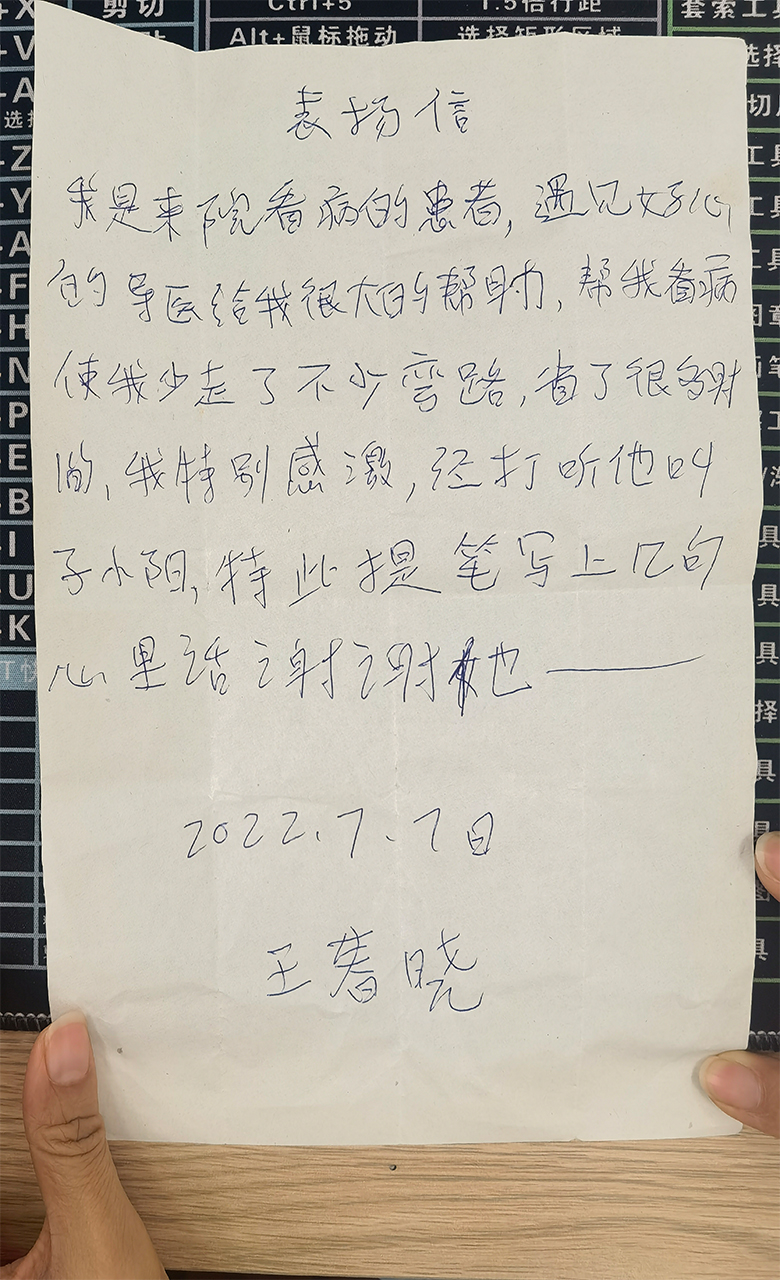 剪切
Ctrl+5
1.5倍行距
套索工
Alt+鼠标拖动
选择矩形区域
表扬信
我是来院看病的患者,遇见好心
的导医给我很大的帮助,帮我看病
使我少走了不少弯路,省了很多时
间,我特别感激,经打听他叫
子小阳,特此提笔写上几句
心里话谢谢他——
2022.7.7日
王春晓
+X
+V
+A
Z
Y
A
F
H
N
P
E
B
I
U
K